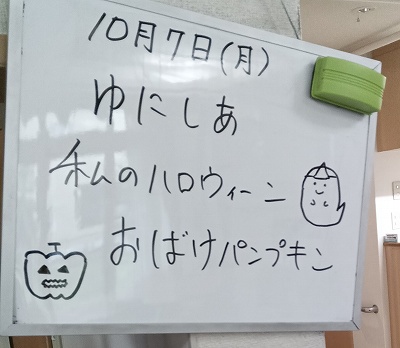 10月7日(月)
ゆにしあ
私のハロウィーン
おばけパンプキン